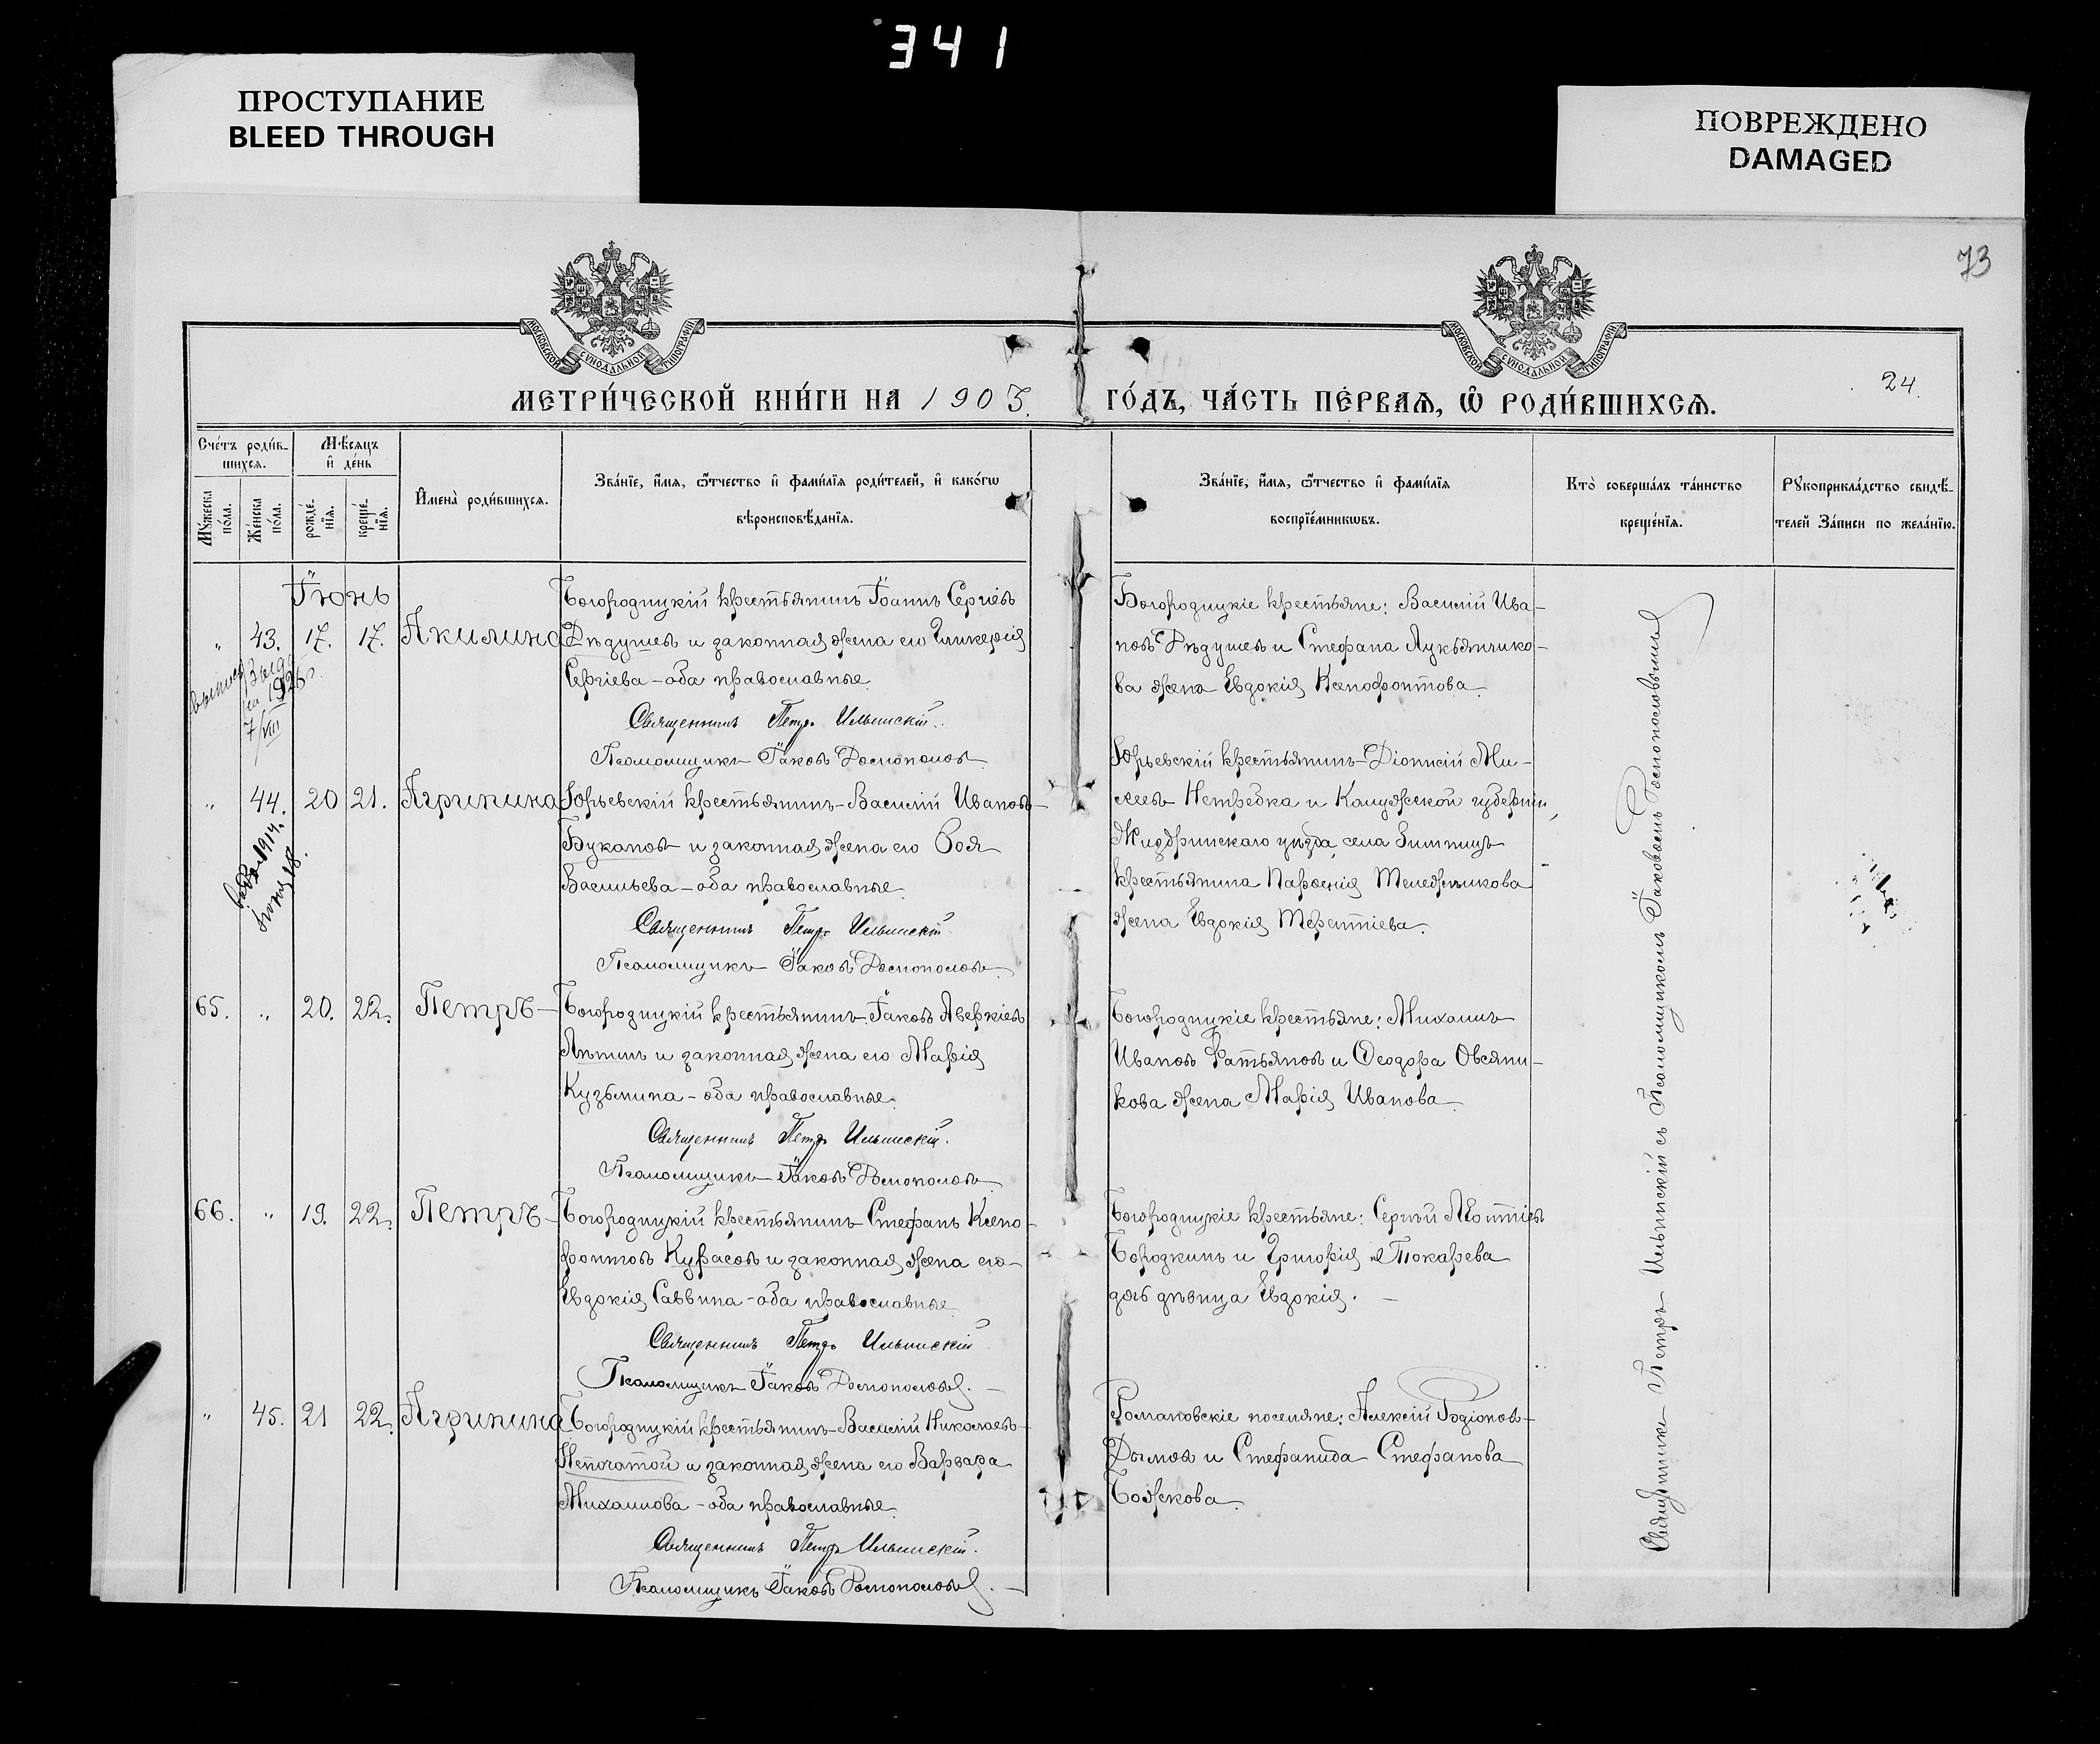 341
ПРОСТУПАНИЕ
BLEED THROUGH
ПОВРЕЖДЕНО
DAMAGED
73
МОСКОВСКОЙ СѴНОДАЛЬНОЙ ТИПОГРАФІИ
МОСКОВСКОЙ СѴНОДАЛЬНОЙ ТИПОГРАФІИ
24.
МЕТРИ́ЧЕСКОЙ КНИ́ГИ НА 1903. ГО́ДЪ, ЧА́СТЬ ПЕ́РВАѦ, Ѡ҆ РОДИ́ВШИХСѦ.
Сче́тъ роди́в-
шихсѧ.
Мѣ́сяцъ
и҆ де́нь
Мꙋ́жеска по́ла.
Же́нска по́ла.
рожде́-нїѧ.
креще́-нїѧ.
И҆мена̀ роди́вшихсѧ.
Зва́нїе, и҆́мѧ, ѻ҆́тчество и҆ фами́лїѧ роди́телей, и҆ како́гѡ
вѣроисповѣ́данїѧ.
Зва́нїе, и҆́мѧ, ѻ҆́тчество и҆ фами́лїѧ
воспрїе́мникѡвъ.
Кто̀ соверша́лъ та́инство
креще́нїѧ.
Рꙋкоприкла́дство свидѣ́-
телей за́писи по жела́нїю.
Іюнь
" 43. 17. 17. Акилина
Богородицкій крестьянинъ Іоаннъ Сергіевъ
Дѣдушев и законная жена его Гликерія
Сергіева - оба православные.
Священникъ Петръ Ильинскій.
Псаломщикъ Іаковъ Роспоповъ
Богородицкіе крестьяне: Василій Ива-
новъ Дѣдушев и Стефана Лукьянчико-
ва жена Евдокія Ксенофонтова.
7/VIII
" 44. 20 21. Агрипина
Юрьевскій крестьянинъ Василій Ивановъ
Букановъ и законная жена его Зоя
Васильева - оба православные.
Священникъ Петръ Ильинскій
Псаломщикъ Іаковъ Роспоповъ
1914.
Юрьевскій крестьянинъ Діонисій Ми-
Нетребка и Калужской губерніи,
Жиздринскаго уѣзда, села Зимницъ
крестьянина Парѳенія Тележникова
жена Евдокія Терентіева.
65. " 20. 22. Петръ
Богородицкій крестьянинъ Іаковъ Аверкіевъ
Лѣтинъ и законная жена его Марія
Кузьмина - оба православные.
Священникъ Петръ Ильинскій.
Псаломщикъ Іаковъ Роспоповъ
Богородицкіе крестьяне: Михаилъ
Ивановъ Фатьяновъ и Ѳеодора Овсяни-
кова жена Марія Иванова.
66. " 19. 22. Петръ
Богородицкій крестьянинъ Стефанъ Ксено-
фонтовъ Курасовъ и законная жена его
Евдокія Саввина - оба православные
Священникъ Петръ Ильинскій
Псаломщикъ Іаковъ Роспоповъ.
Богородицкіе крестьяне: Сергѣй Леонтіевъ
Бородкинъ и Григорія Токарева
дочь дѣвица Евдокія.
" 45. 21 22. Агрипина
Богородицкій крестьянинъ Василій Николаевъ
Непочатой и законная жена его Варвара
Михаилова - оба православные.
Священникъ Петръ Ильинскій.
Псаломщикъ Іаковъ Роспоповъ.
Романовскіе поселяне: Алексій Родіоновъ
Дымов и Стефанида Стефанова
Божкова.
Священникъ Петръ Ильинскій съ Псаломщикомъ Іаковомъ Роспоповымъ